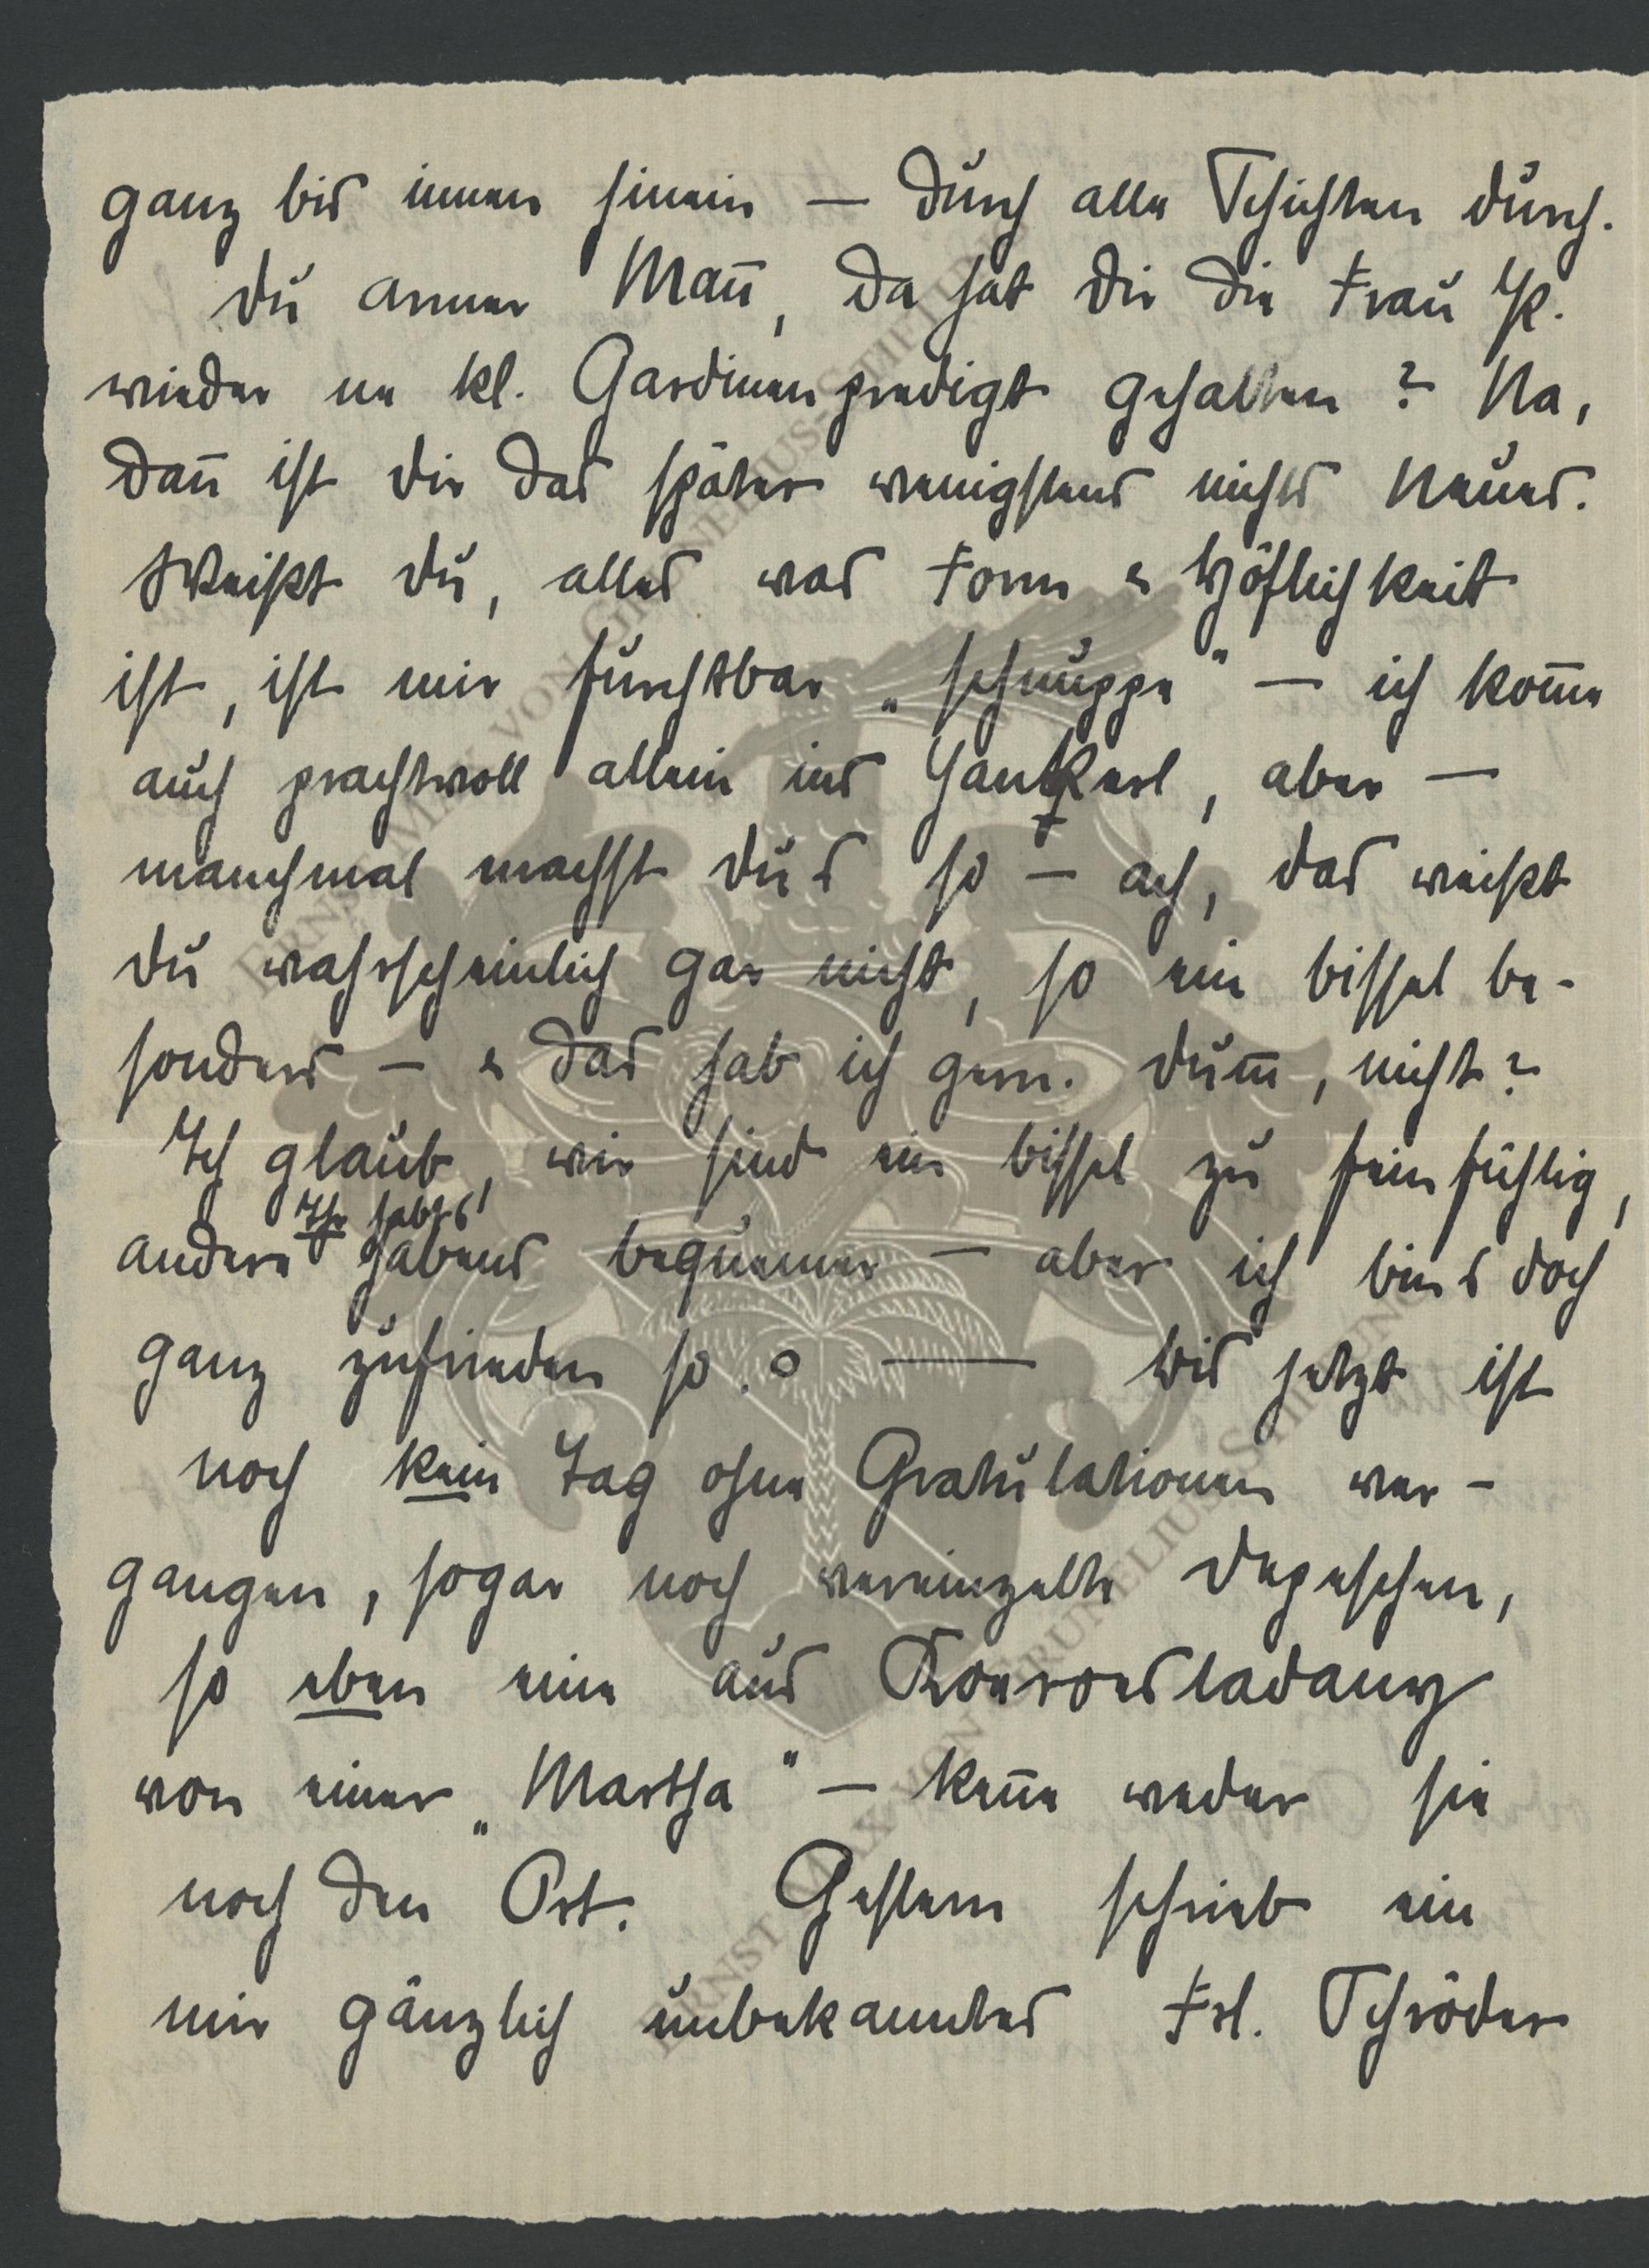 ganz bis innen hinein — durch alle Schichten durch.
Du armer Mañ, da hat dir die Frau K.
wieder ne kl. Gardinenpredigt gehalten? Na,
dañ ist dir das später wenigstens nichts Neues.
Weißt du, alles was Form & Höflichkeit
ist, ist mir furchtbar „schnuppe" — ich kom̄e
auch prachtvoll allein ins, aber —
manchmal machst du's so — ach, das weißt
du wahrscheinlich gar nicht, so ein bissel be-
sonders — & das hab ich gern. Dum̄, nicht?
Ich glaub, wir sind ein bissel zu feinfühlig,
Ihr habt's!
andere habens bequemer — aber ich bin's doch
ganz zufrieden so. — Bis jetzt ist
noch kein Tag ohne Gratulationen ver-
gangen, sogar noch vereinzelte Depeschen,
so eben eine aus
von einer „Martha" — keñe weder sie
noch den Ort. Gestern schrieb ein
mir gänzlich unbekanntes Frl. Schröder
ERNST MAX VON GRUNELIUS-STIFTUNG
ERNST MAX VON GRUNELIUS-STIFTUNG